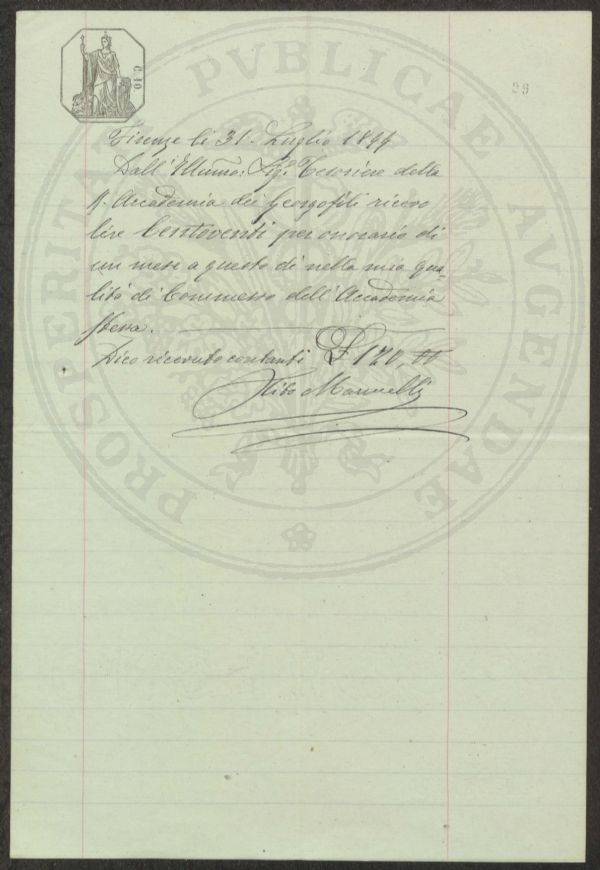 PROSPERITATI PVBLICAE AVGENDAE
C. 10
29
Firenze li 31. Luglio 1894
Dall' Illmo: Sigr Tesoriere della
R. Accademia dei Georgofili ricevo
lire Centoventi per onorario di
un mese a questo dì nella mia qua-
lità di Commesso dell' Accademia
stessa.
Dico ricevuto contanti £ 120,
Marinelli